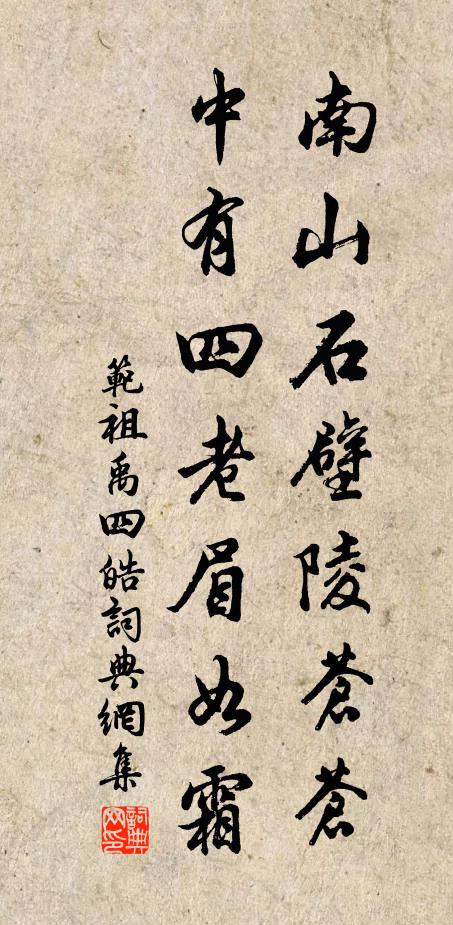 南山石壁陵蒼蒼
中有四老眉如霜
範祖禹四皓詞典網集
詞典网印